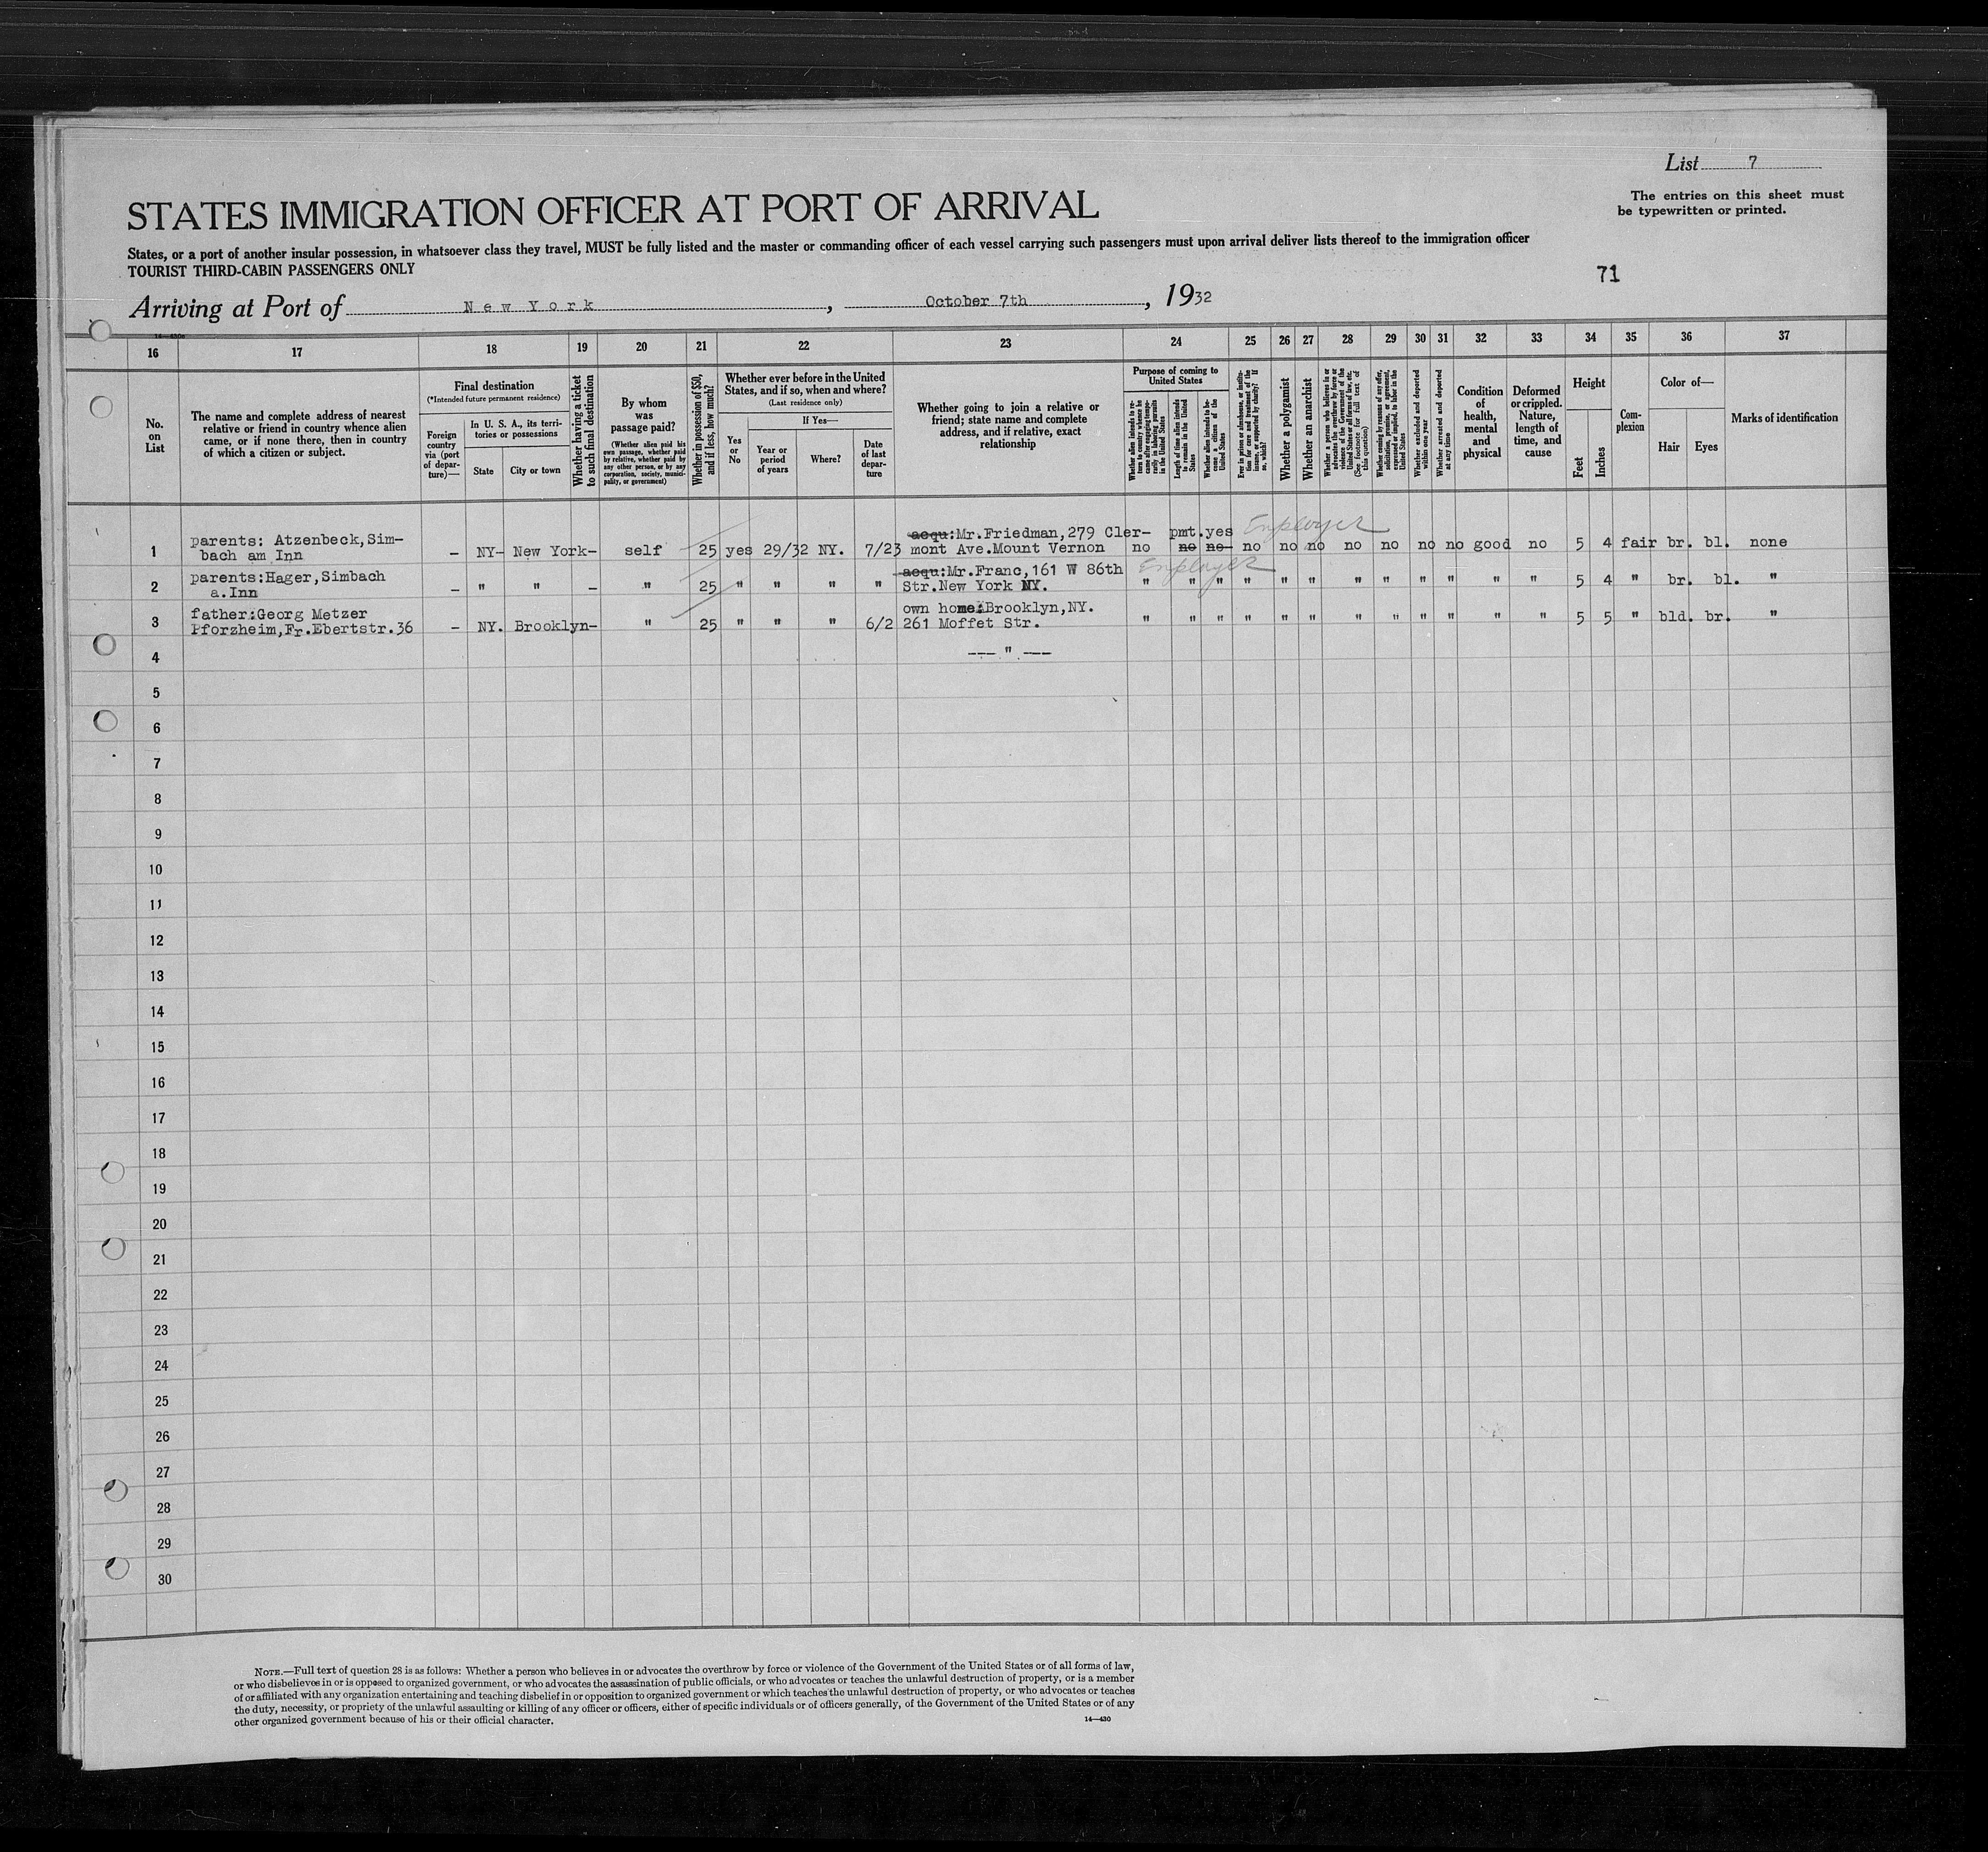 List 7
The entries on this sheet must
be typewritten or printed.
STATES IMMIGRATION OFFICER AT PORT OF ARRIVAL
States, or a port of another insular possession, in whatsoever class they travel, MUST be fully listed and the master or commanding officer of each vessel carrying such passengers must upon arrival deliver lists thereof to the immigration officer
TOURIST THIRD-CABIN PASSENGERS ONLY
71
Arriving at Port of New York, October 7th, 1932
16 17 18 19 20 21 22 23 24 25 26 27 28 29 30 31 32 33 34 35 36 37
No.
on
List
The name and complete address of nearest
relative or friend in country whence alien
came, or if none there, then in country
of which a citizen or subject.
Final destination
(*Intended future permanent residence)
Foreign
country
via (port
of depar-
ture)—
In U. S. A., its terri-
tories or possessions
State
City or town
Whether having a ticket
to such final destination
By whom
was
passage paid?
(Whether alien paid his
own passage, whether paid
by relative, whether paid by
any other person, or by any
corporation, society, munici-
pality, or government)
Whether in possession of $50,
and if less, how much?
Whether ever before in the United
States, and if so, when and where?
(Last residence only)
Yes
or
No
If Yes—
Year or
period
of years
Where?
Date
of last
depar-
ture
Whether going to join a relative or
friend; state name and complete
address, and if relative, exact
relationship
Purpose of coming to
United States
Whether alien intends to re-
turn to country whence he
came after engaging tempo-
rarily in laboring pursuits
in the United States
Length of time alien intends
to remain in the United
States
Whether alien intends to be-
come a citizen of the
United States
Ever in prison or almshouse, or institu-
tion for care and treatment of the
insane, or supported by charity? If
so, which?
Whether a polygamist
Whether an anarchist
Whether a person who believes in or
advocates the overthrow by force or
violence of the Government of the
United States or all forms of law, etc.
(See footnote for full text of
this question)
Whether coming by reason of any offer,
solicitation, promise, or agreement,
expressed or implied, to labor in the
United States
Whether excluded and deported
within one year
Whether arrested and deported
at any time
Condition
of
health,
mental
and
physical
Deformed
or crippled.
Nature,
length of
time, and
cause
Height
Feet
Inches
Com-
plexion
Color of—
Hair
Eyes
Marks of identification
parents: Atzenbeck,Sim- acqu:Mr.Friedman,279 Cler- pmt. yes Employer
1 bach am Inn - NY- New York- self 25 yes 29/32 NY. 7/23 mont Ave.Mount Vernon no no no no no no no no no no good no 5 4 fair br. bl. none
parents:Hager,Simbach acqu:Mr.Franc,161 W 86th Employer
2 a.Inn - " " - " 25 " " " " Str.New York NY. " " " " " " " " " " " " 5 4 " br. bl. "
father:Georg Metzer own home:Brooklyn,NY.
3 Pforzheim,Fr.Ebertstr.36 - NY. Brooklyn- " 25 " " " 6/2 261 Moffet Str. " " " " " " " " " " " " 5 5 " bld. br. "
4 --- " ---
5
6
7
8
9
10
11
12
13
14
15
16
17
18
19
20
21
22
23
24
25
26
27
28
29
30
NOTE.—Full text of question 28 is as follows: Whether a person who believes in or advocates the overthrow by force or violence of the Government of the United States or of all forms of law,
or who disbelieves in or is opposed to organized government, or who advocates the assassination of public officials, or who advocates or teaches the unlawful destruction of property, or is a member
of or affiliated with any organization entertaining and teaching disbelief in or opposition to organized government or which teaches the unlawful destruction of property, or who advocates or teaches
the duty, necessity, or propriety of the unlawful assaulting or killing of any officer or officers, either of specific individuals or of officers generally, of the Government of the United States or of any
other organized government because of his or their official character.
14—430